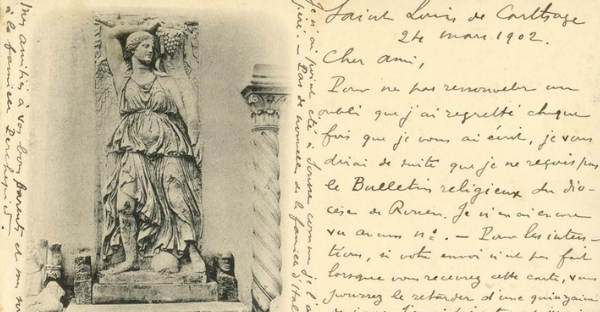 Saint Louis de Carthage
24 mars 1902.
Cher ami,
Pour ne pas renouveler un
oubli que j'ai regretté chaque
fois que je vous ai écrit, je vous
dirai de suite que je ne reçois pas
le Bulletin religieux du dio-
cèse de Rouen. Je n'en ai encore
vu aucun nº. – Pour les inten-
tions, si votre envoi n'est pas fait
lorsque vous recevrez cette carte, vous
pourrez le retarder d'une quinzaine
Je n'ai point été à Sousse comme je l'
– Pas de nouvelles de la famille d'
Mes amitiés à vos bons parents et
à la famille